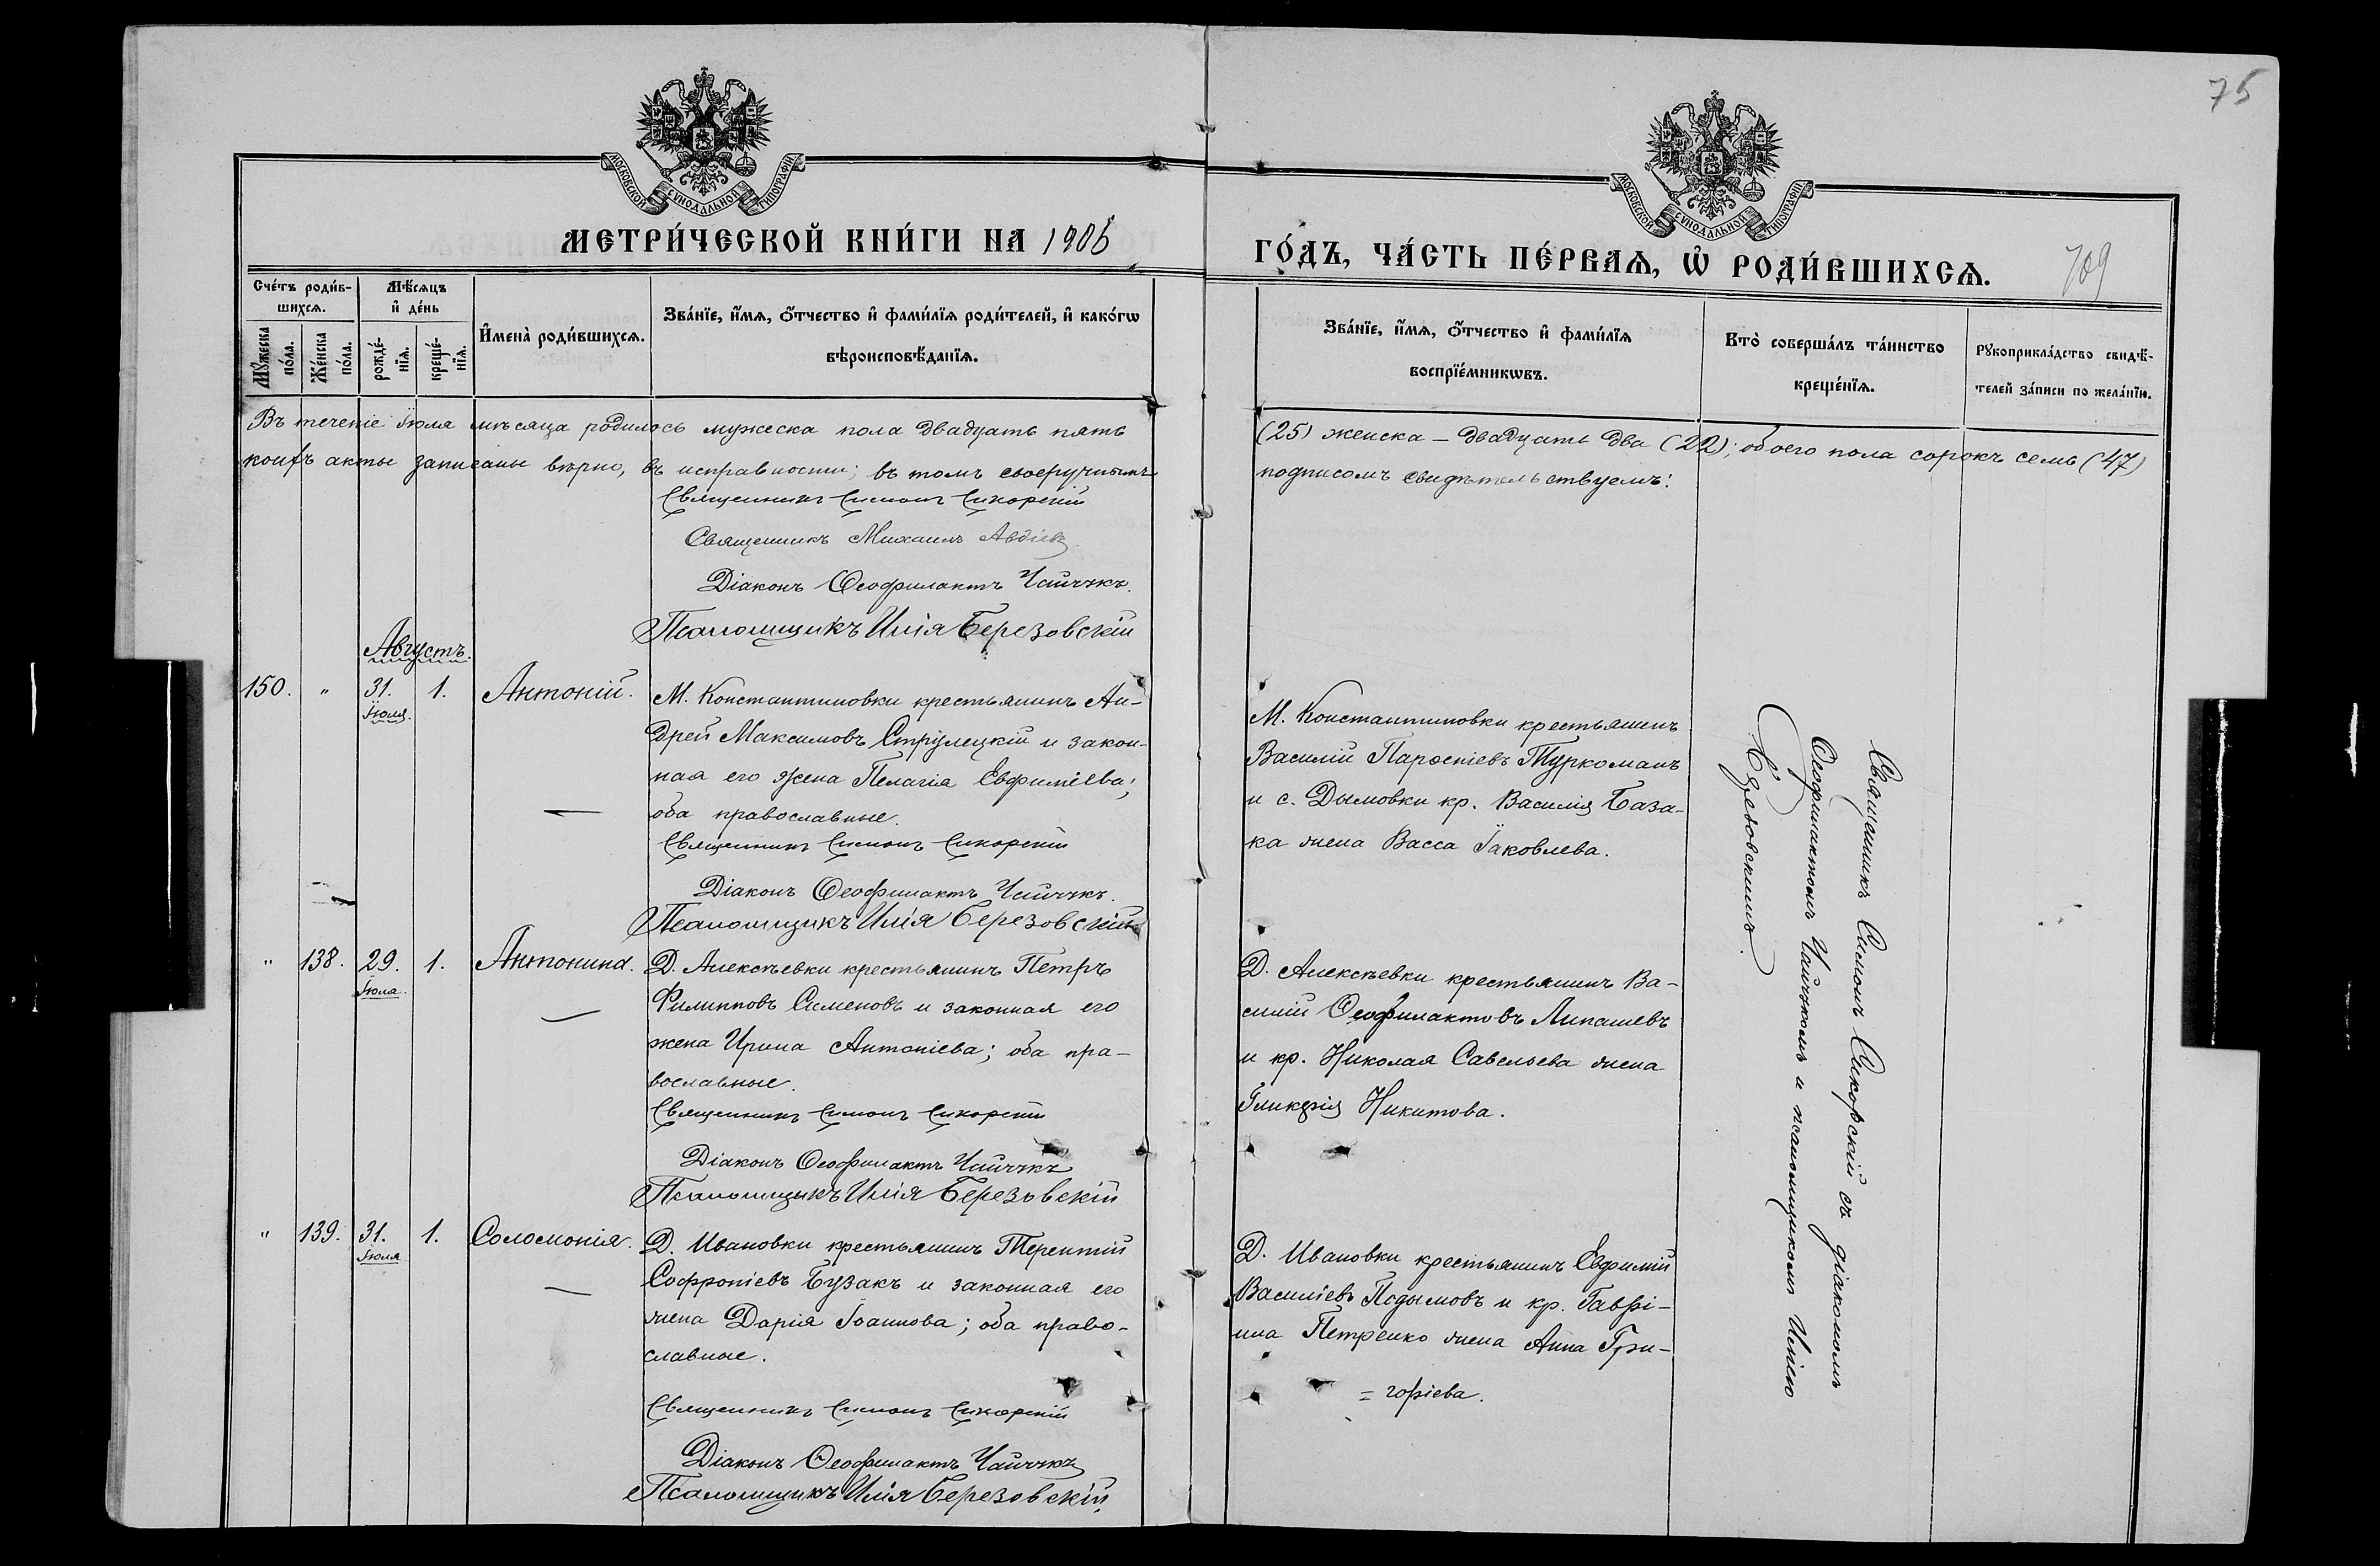 75
МОСКОВСКОЙ СѴНОДАЛЬНОЙ ТИПОГРАФІИ
МОСКОВСКОЙ СѴНОДАЛЬНОЙ ТИПОГРАФІИ
МЕТРИ́ЧЕСКОЙ КНИ́ГИ НА 1905
ГО́ДЪ, ЧА́СТЬ ПЕ́РВАѦ, Ѡ҆ РОДИ́ВШИХСѦ.
709
Сче́тъ роди́в-
шихсѧ.
Мꙋ́жеска
по́ла.
Же́нска
по́ла.
Мѣ́сѧцъ
и҆ де́нь
рожде́-
нїѧ.
креще́-
нїѧ.
И҆мена̀ роди́вшихсѧ.
Зва́нїе, и҆́мѧ, ѻ҆́тчество и҆ фами́лїѧ роди́телей, и҆ како́гѡ
вѣроисповѣ́данїѧ.
Зва́нїе, и҆́мѧ, ѻ҆́тчество и҆ фами́лїѧ
воспрїе́мникѡвъ.
Кто̀ соверша́лъ та́инство
креще́нїѧ.
Рꙋкоприкла́дство свидѣ́-
телей за́писи по жела́нїю.
Въ теченіе Іюля мѣсяца родилось мужеска пола двадцать пять
(25) женска – двадцать два (22); обоего пола сорокъ семь (47)
коихъ акты записаны вѣрно, въ исправности; въ томъ своеручнымъ
подписомъ свидѣтельствуемъ:
Священникъ Симонъ Сикорскій
Священникъ Михаилъ Авдіевъ
Діаконъ Ѳеофилактъ
Псаломщикъ Илія Березовскій
Августъ.
150. " 31. 1. Антоній.
Іюля.
М. Константиновки крестьянинъ Ан-
дрей Максимовъ Стрілецкій и закон-
ная его жена Пелагіа Евфиміева;
оба православные.
Священникъ Симонъ Сикорскій
Діаконъ Ѳеофилактъ
Псаломщикъ Илія Березовскій
М. Константиновки крестьянинъ
Василій Туркоманъ
и с. Дымовки кр. Василія База-
ка жена Васса Іаковлева.
" 138. 29. 1. Антонина.
Іюля.
Д. Алексѣевки крестьянинъ Петръ
Филипповъ Семеновъ и законная его
жена Ирина Антоніева; оба пра-
вославные.
Священникъ Симонъ Сикорскій
Діаконъ Ѳеофилактъ
Псаломщикъ Илія Березовскій
Д. Алексѣевки крестьянинъ Ва-
силій Ѳеофилактовъ Липашевъ
и кр. Николая Савельева жена
Гликерія Никитова.
" 139. 31. 1. Соломонія.
Іюля
Д. Ивановки крестьянинъ Терентій
Софроніевъ Бузакъ и законная его
жена Дарія Іоаннова; оба право-
славные.
Священникъ Симонъ Сикорскій
Діаконъ Ѳеофилактъ
Псаломщикъ Илія Березовскій
Д. Ивановки крестьянинъ Евфимій
Василіевъ Подымовъ и кр. Гаврі-
ила Петренко жена Анна Гри-
= горіева.
Священникъ Симонъ Сикорскій съ діакономъ
Ѳеофилактомъ и псаломщикомъ Иліею
Березовскимъ.